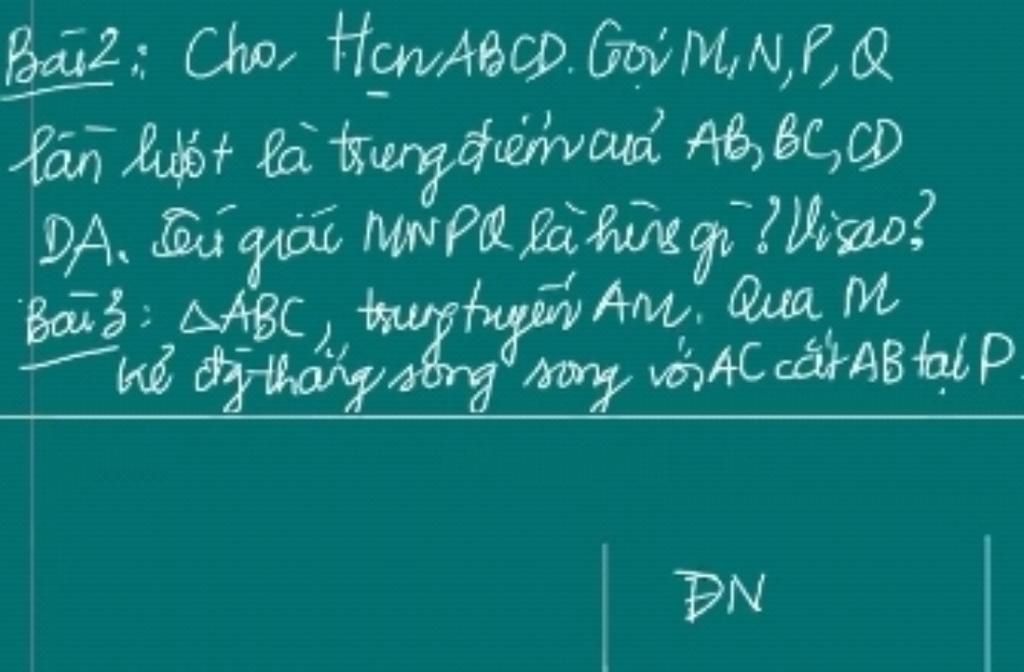 Bài 2: Cho Hcn ABCD. Gọi M, N, P, Q
lần lượt là trung điểm của AB, BC, CD
DA. Tứ giác MNPQ là hình gì? Vì sao?
Bài 3: △ABC, trung tuyến AM. Qua M
kẻ đg thẳng song song với AC cắt AB tại P.
ĐN